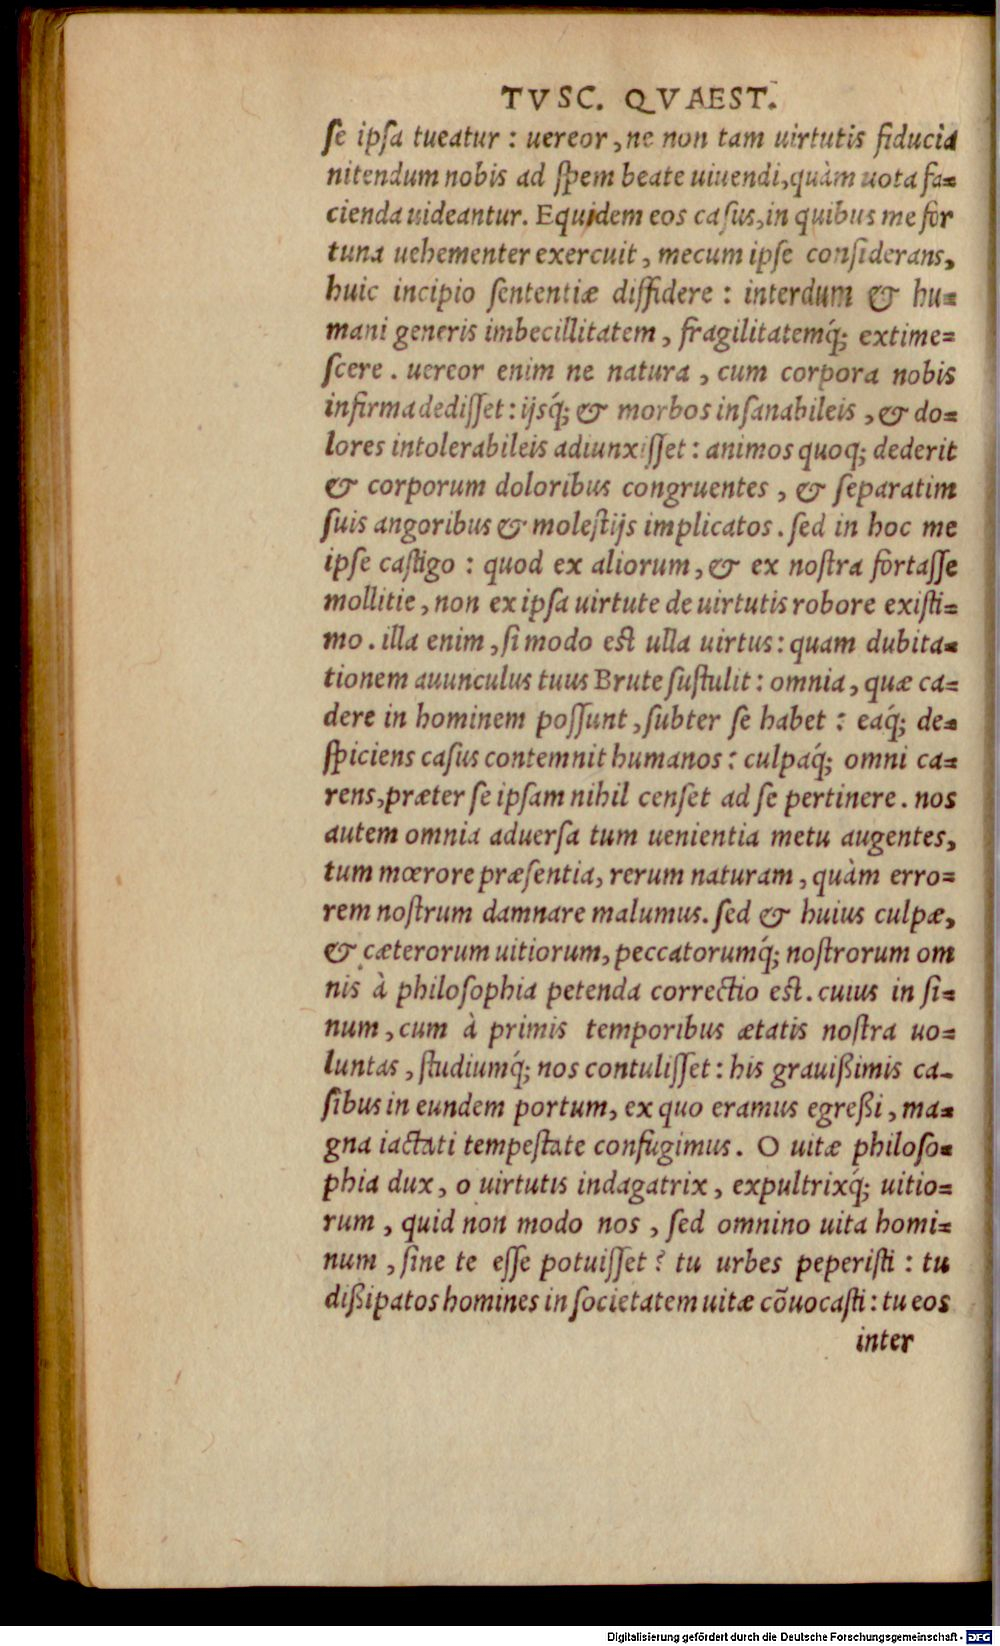 TVSC. QVAEST.
ſe ipſa tueatur : uereor, ne non tam uirtutis fiducia
nitendum nobis ad ſpem beate uiuendi, quàm uota fa=
cienda uideantur. Equidem eos caſus, in quibus me for
tuna uehementer exercuit, mecum ipſe conſiderans,
huic incipio ſententiæ diffidere : interdum & hu=
mani generis imbecillitatem, fragilitatemq́; extime=
ſcere . uereor enim ne natura, cum corpora nobis
infirma dediſſet : ijsq́; & morbos inſanabileis, & do=
lores intolerabileis adiunxiſſet : animos quoq; dederit
& corporum doloribus congruentes, & ſeparatim
ſuis angoribus & moleſtijs implicatos. ſed in hoc me
ipſe caſtigo : quod ex aliorum, & ex noſtra fortaſſe
mollitie, non ex ipſa uirtute de uirtutis robore exiſti=
mo. illa enim, ſi modo eſt ulla uirtus : quam dubita=
tionem auunculus tuus Brute ſuſtulit : omnia, quæ ca=
dere in hominem poſſunt, ſubter ſe habet : eaq́; de=
ſpiciens caſus contemnit humanos : culpaq́; omni ca=
rens, præter ſe ipſam nihil cenſet ad ſe pertinere. nos
autem omnia aduerſa tum uenientia metu augentes,
tum mœrore præſentia, rerum naturam, quàm erro=
rem noſtrum damnare malumus. ſed & huius culpæ,
& cæterorum uitiorum, peccatorumq́; noſtrorum om
nis à philoſophia petenda correctio eſt. cuius in ſi=
num, cum à primis temporibus ætatis noſtra uo=
luntas, ſtudiumq́; nos contuliſſet : his grauißimis ca-
ſibus in eundem portum, ex quo eramus egreßi, ma=
gna iactati tempeſtate confugimus. O uitæ philoſo=
phia dux, o uirtutis indagatrix, expultrixq́; uitio=
rum, quid non modo nos, ſed omnino uita homi=
num, ſine te eſſe potuiſſet? tu urbes peperiſti : tu
dißipatos homines in ſocietatem uitæ cõuocaſti : tu eos
inter
Digitalisierung gefördert durch die Deutsche Forschungsgemeinschaft - DFG